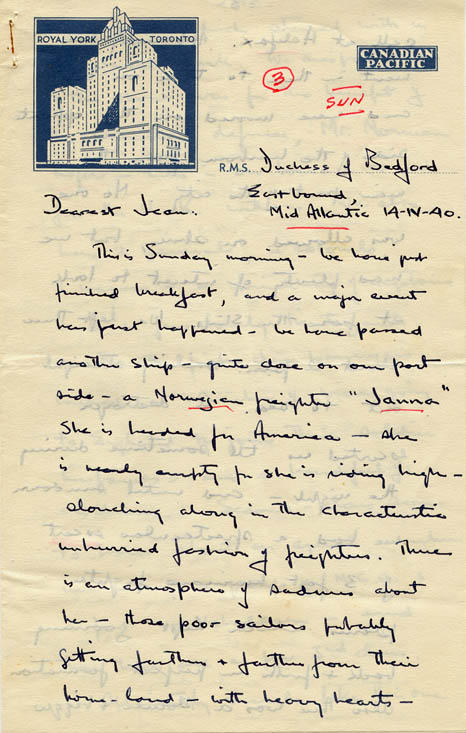 ROYAL YORK TORONTO
CANADIAN
PACIFIC
3
SUN
R.M.S. Duchess of Bedford
Eastbound,
Mid Atlantic 14-IV-40.
Dearest Jean.
This is Sunday morning - We have just
finished breakfast, and a major event
has just happened - We have passed
another ship - quite close on our port
side - a Norwegian freighter "Janna"
She is headed for America - she
is nearly empty for she is riding high -
slouching along in the characteristic
unhurried fashion of freighters. There
is an atmosphere of sadness about
her - those poor sailors probably
getting farther + farther from their
home-land - with heavy hearts -